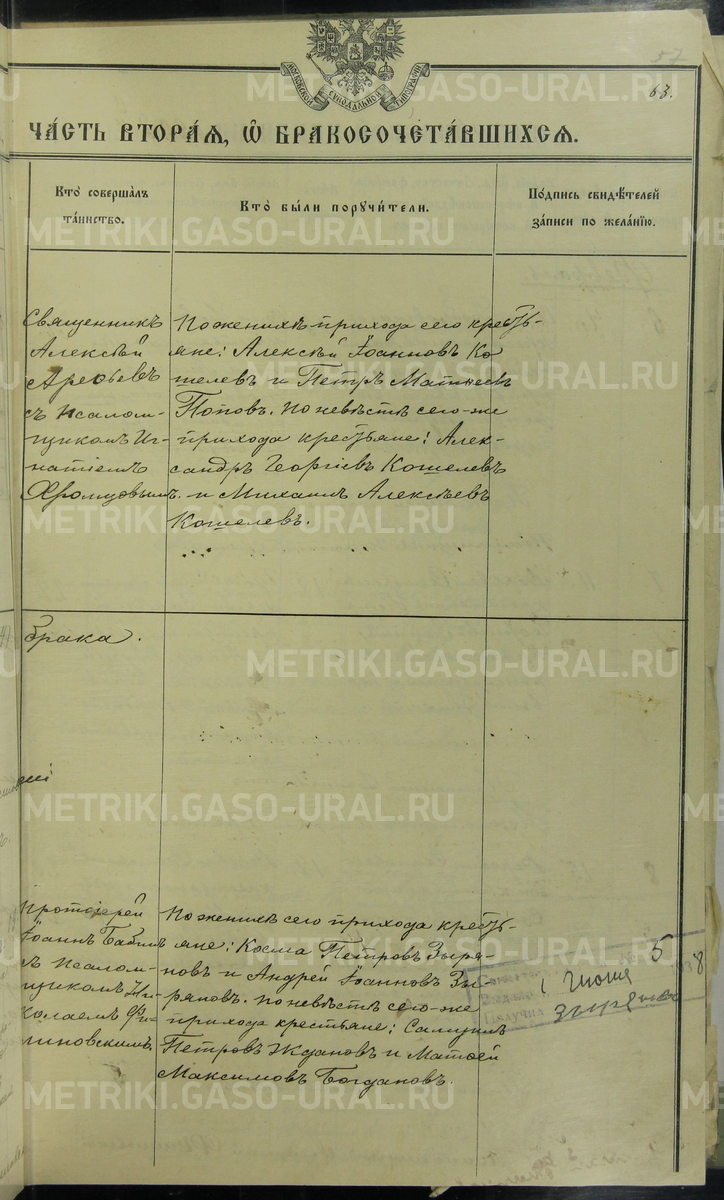 57
63.
МОСКОВСКОЙ СѴНОДАЛЬНОЙ ТИПОГРАФІИ
ЧА́СТЬ ВТОРА́Я, Ѽ БРАКОСОЧЕТА́ВШИХСЯ.
Кто̀ соверша́лъ
та́инство.
Кто̀ бы́ли поручи́тели.
По́дпись свидѣ́телей
за́писи по жела́нїю.
Священникъ
Алексѣй
Арефьевъ
съ псалом-
щикомъ Иг-
натіемъ
Хромцовымъ.
По женихѣ прихода сего кресть-
яне: Алексѣй Іоанновъ Ко
шелевъ и Петръ Матѳеевъ
Поповъ. По невѣстѣ сего-же
прихода крестьяне: Алек-
сандръ Георгіевъ Кошелевъ
и Михаилъ Алексѣевъ
Кошелевъ.
брака.
Протоіерей
Іоаннъ Бабинъ
съ псалом-
щикомъ Ни-
колаемъ
По женихѣ сего прихода кресть-
яне: Косма Петровъ Зыря-
новъ и Андрей Іоанновъ Зы-
ряновъ. по невѣстѣ сего-же
прихода крестьяне: Самуилъ
Петровъ Ждановъ и Матѳей
Максимовъ Богдановъ.
5
8
Получил
METRIKI.GASO-URAL.RU